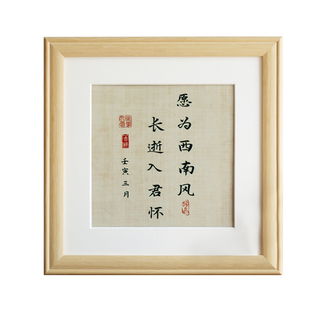 愿为西南风
长逝入君怀
壬寅三月